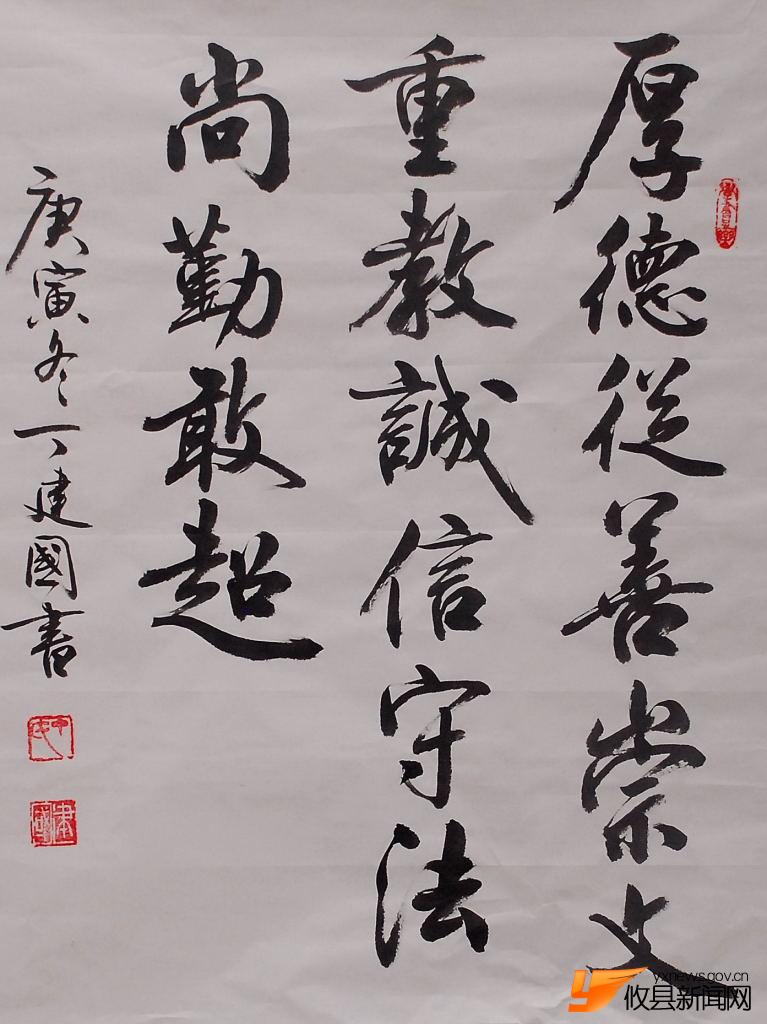 厚德從善崇文
重教誠信守法
尚勤敢超
庚寅冬丁建國書
yxnews.gov.cn
攸县新闻网